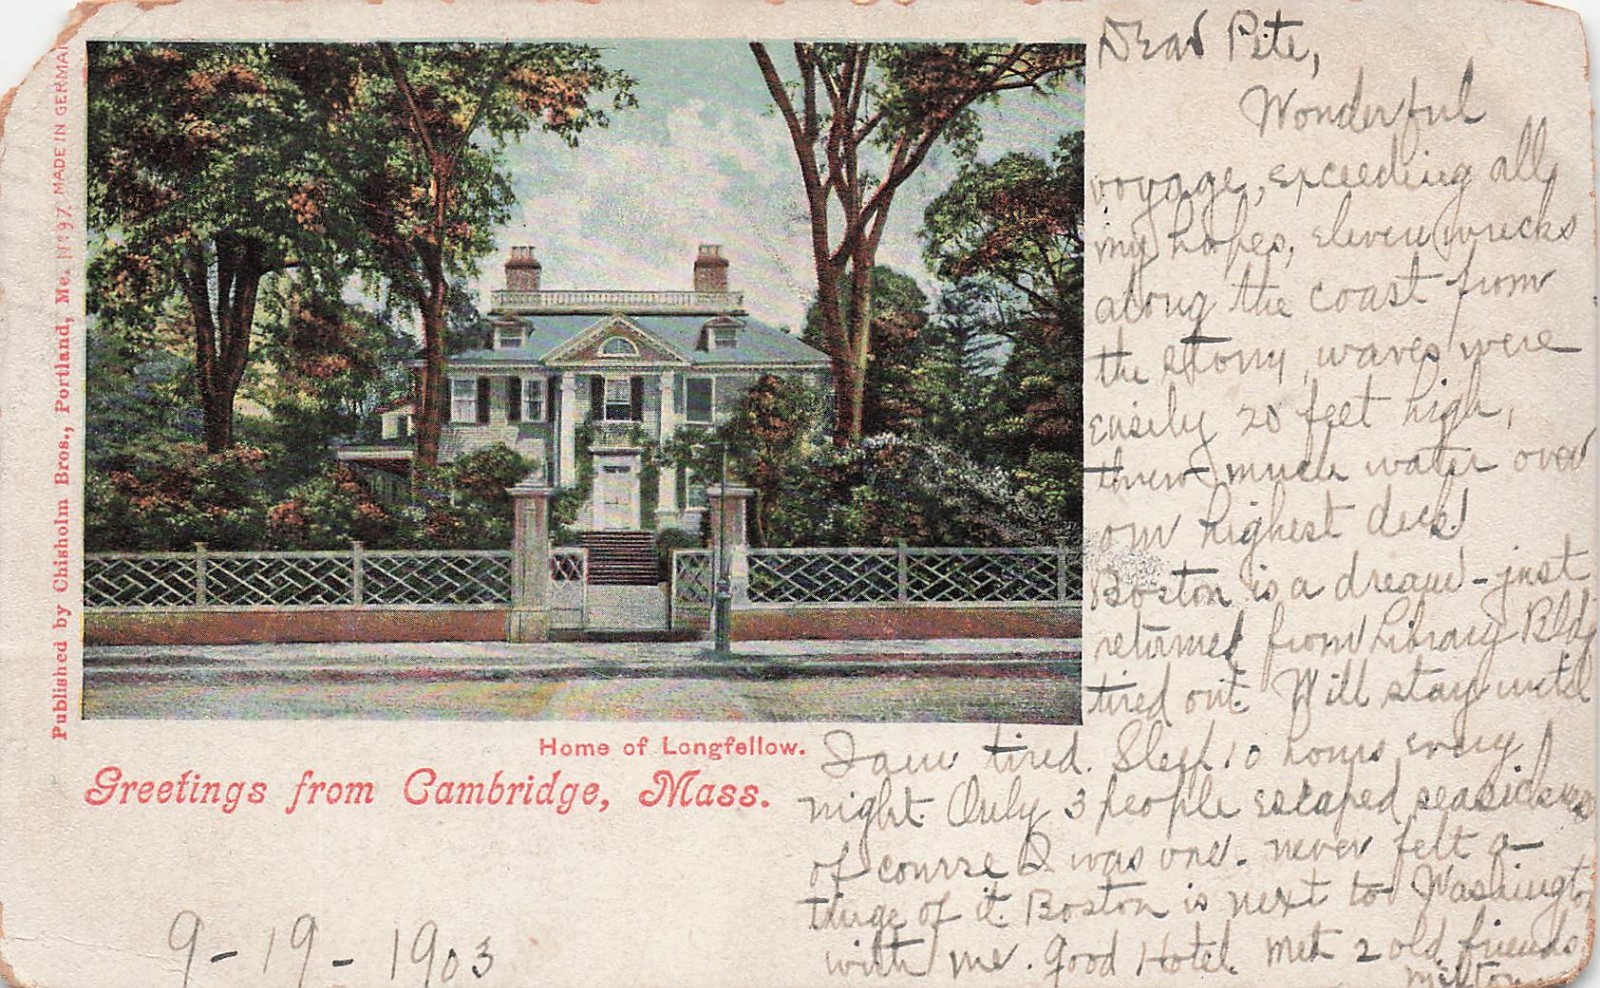 Published by Chisholm Bros., Portland, Me. No 97. MADE IN GERMA
Home of Longfellow.
Greetings from Cambridge, Mass.
9-19-1903
Dear Pete,
Wonderful
voyage, exceeding all
my hopes, eleven wrecks
along the coast from
the storm, waves were
easily 20 feet high,
threw much water over
our highest deck!
Boston is a dream - just
returned from Library Bldg
tired out. Will stay until
I am tired. Sleep 10 hours every
night. Only 3 people escaped seasickness
of course I was one. never felt a
tinge of it. Boston is next to Washington
with me. Good Hotel. Met 2 old friends.
Milton